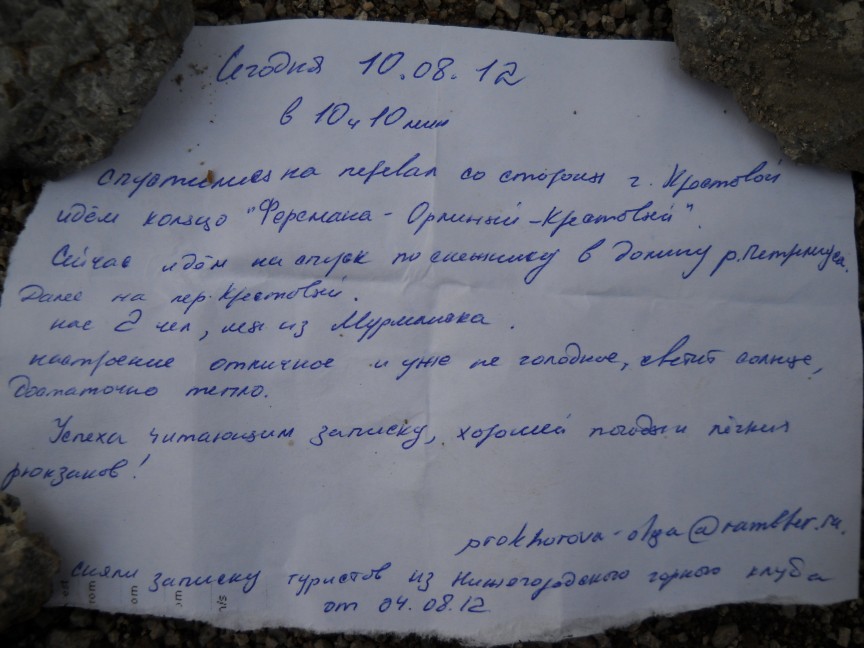 Сегодня 10.08.12
в 10ч 10 мин
спустились на перевал со стороны г. Крестовой
идём кольцо "Ферсмана - Орлиный - Крестовый".
Сейчас идём на спуск по снежнику в долину р. Петрелиуса.
Далее на пер. Крестовый.
нас 2 чел, мы из Мурманска.
настроение отличное и уже не голодное, светит солнце,
достаточно тепло.
Успеха читающим записку, хорошей погоды и лёгких
рюкзаков!
prokhorova-olga@rambler.ru.
сняли записку туристов из Нижегородского горного клуба
от 04.08.12